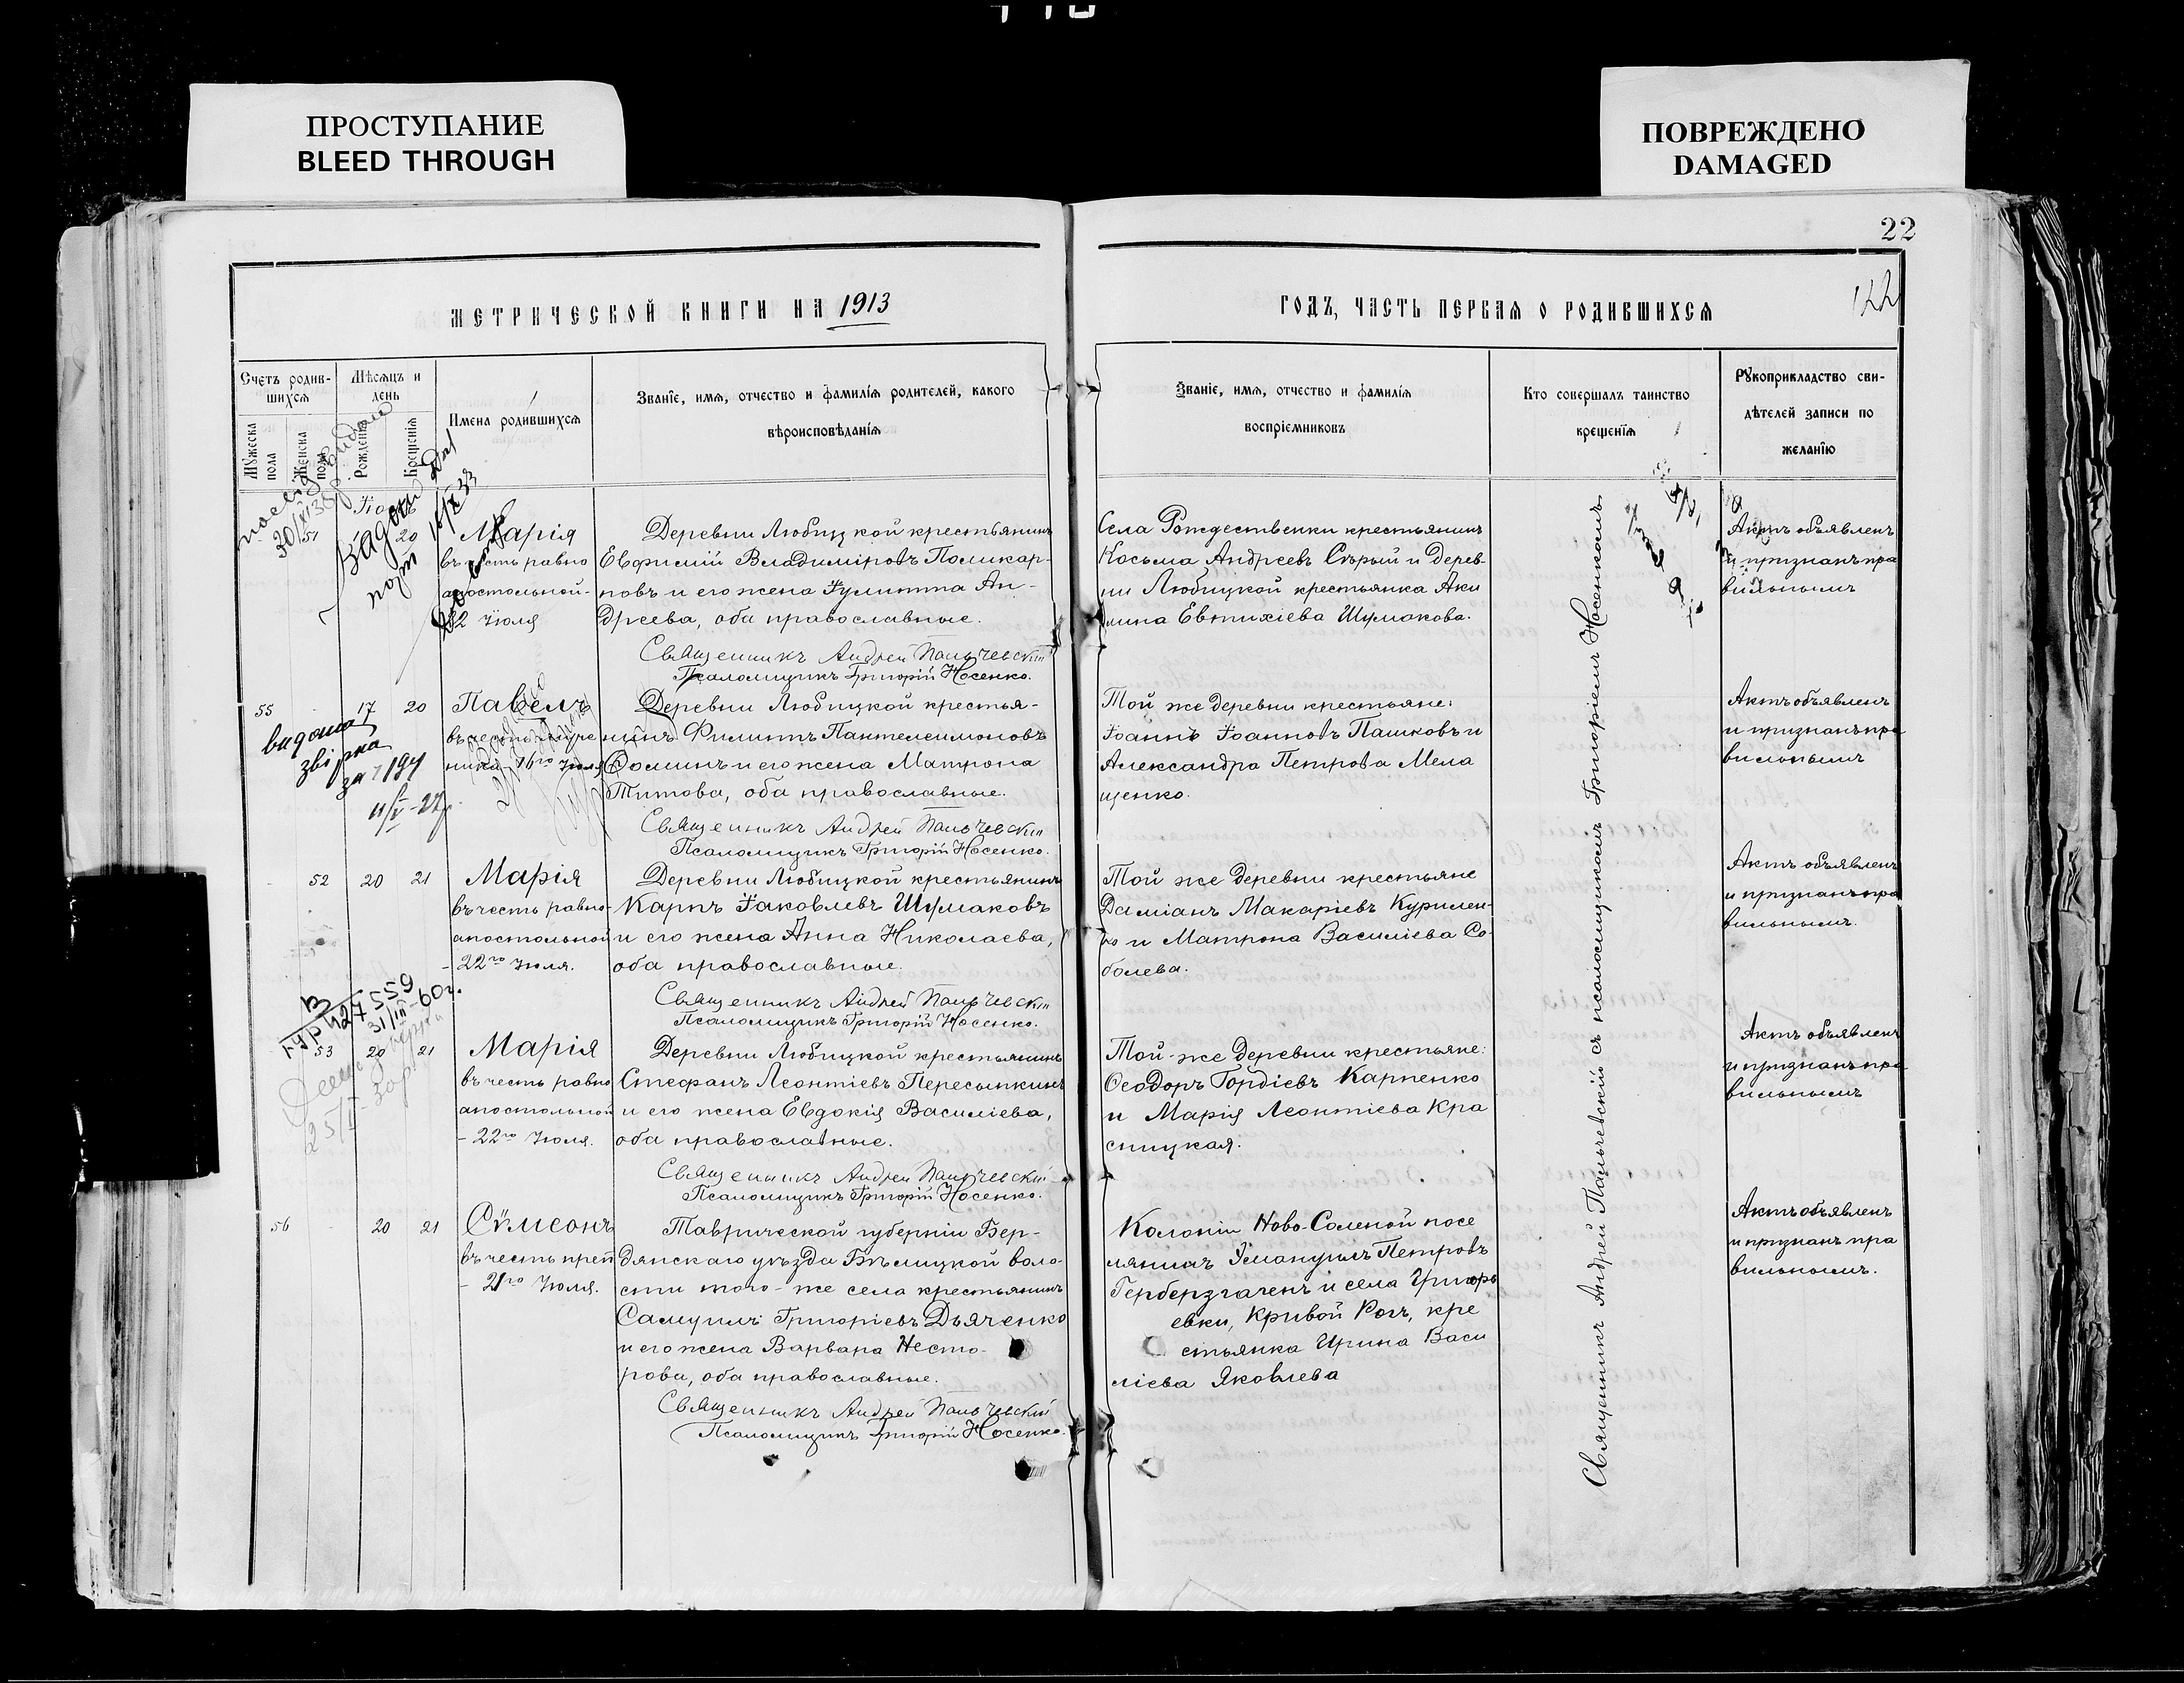 ПРОСТУПАНИЕ
BLEED THROUGH
ПОВРЕЖДЕНО
DAMAGED
22
122
МЕТРИЧЕСКОЙ КНИГИ НА 1913
ГОДЪ, ЧАСТЬ ПЕРВАЯ О РОДИВШИХСЯ
Счетъ родив-
шихся
Мужеска пола
Женска пола
Мѣсяцъ и
день
Рожденія
Крещенія
Имена родившихся
Званіе, имя, отчество и фамилія родителей, какого
вѣроисповѣданія
Званіе, имя, отчество и фамилія
воспріемниковъ
Кто совершалъ таинство
крещенія
Рукоприкладство сви-
дѣтелей записи по
желанію
51
20
Марія
въ честь равно
апостольной-
22 Іюля
Деревни Любицкой крестьянинъ
Евфимій Владиміровъ Поликар-
повъ и его жена Іулитта Ан-
дреева, оба православные.
Священникъ Андрей Пальчевскій
Псаломщикъ Григорій Носенко.
Села Рождественки крестьянинъ
Косьма Андреевъ Сѣрый и дерев-
ни Любицкой крестьянка Аки
лина Евтихіева Шумакова.
Актъ объявленъ
и признанъ пра
вильнымъ
55
17
20
Павелъ
въ честь муче
ника 16го Іюля
Деревни Любицкой крестья-
нинъ Филиппъ Пантелеимоновъ
Ѳоминъ и его жена Матрона
Титова, оба православные.
Священникъ Андрей Пальчевскій
Псаломщикъ Григорій Носенко.
Той же деревни крестьяне:
Іоаннъ Іоанновъ Пашковъ и
Александра Петрова Мела
щенко.
Актъ объявленъ
и признанъ пра
вильнымъ
видана
звірка
11/V-27р.
52
20
21
Марія
въ честь равно-
апостольной
- 22го Іюля.
Деревни Любицкой крестьянинъ
Карпъ Іаковлевъ Шумаковъ
и его жена Анна Николаева,
оба православные.
Священникъ Андрей Пальчевскій
Псаломщикъ Григорій Носенко.
Той же деревни крестьяне
Даміанъ Макаріевъ Курилен-
ко и Матрона Василіева Со
болева.
Актъ объявленъ
и признанъ пра
вильнымъ.
27559
31/III-60г.
53
20
21
Марія
въ честь равно
апостольной
- 22го Іюля.
Деревни Любицкой крестьянинъ
Стефанъ Леонтіевъ Пересыпкинъ
и его жена Евдокія Василіева,
оба православные.
Священникъ Андрей Пальчевскій
Псаломщикъ Григорій Носенко.
Той-же деревни крестьяне:
Ѳеодоръ Гордіевъ Карпенко
и Марія Леонтіева Кра
сницкая.
Актъ объявленъ
и признанъ пра
вильнымъ
56
20
21
Сѵмеонъ
въ честь преп
- 21го Іюля.
Таврической губерніи Бер-
дянскаго уѣзда Бѣлицкой воло-
сти того-же села крестьянинъ
Самуилъ Григоріевъ Дьяченко
и его жена Варвара Несто-
рова, оба православные.
Священникъ Андрей Пальчевскій
Псаломщикъ Григорій Носенко.
Колоніи Ново-Соленой посе
лянинъ Емануилъ Петровъ
Гербергагенъ и села Григорь
евки, Кривой Рогъ, кре
стьянка Ирина Васи
ліева Яковлева
Актъ объявленъ
и признанъ пра
вильнымъ.
Священникъ Андрей Пальчевскій съ псаломщикомъ Григоріемъ Носенкомъ.